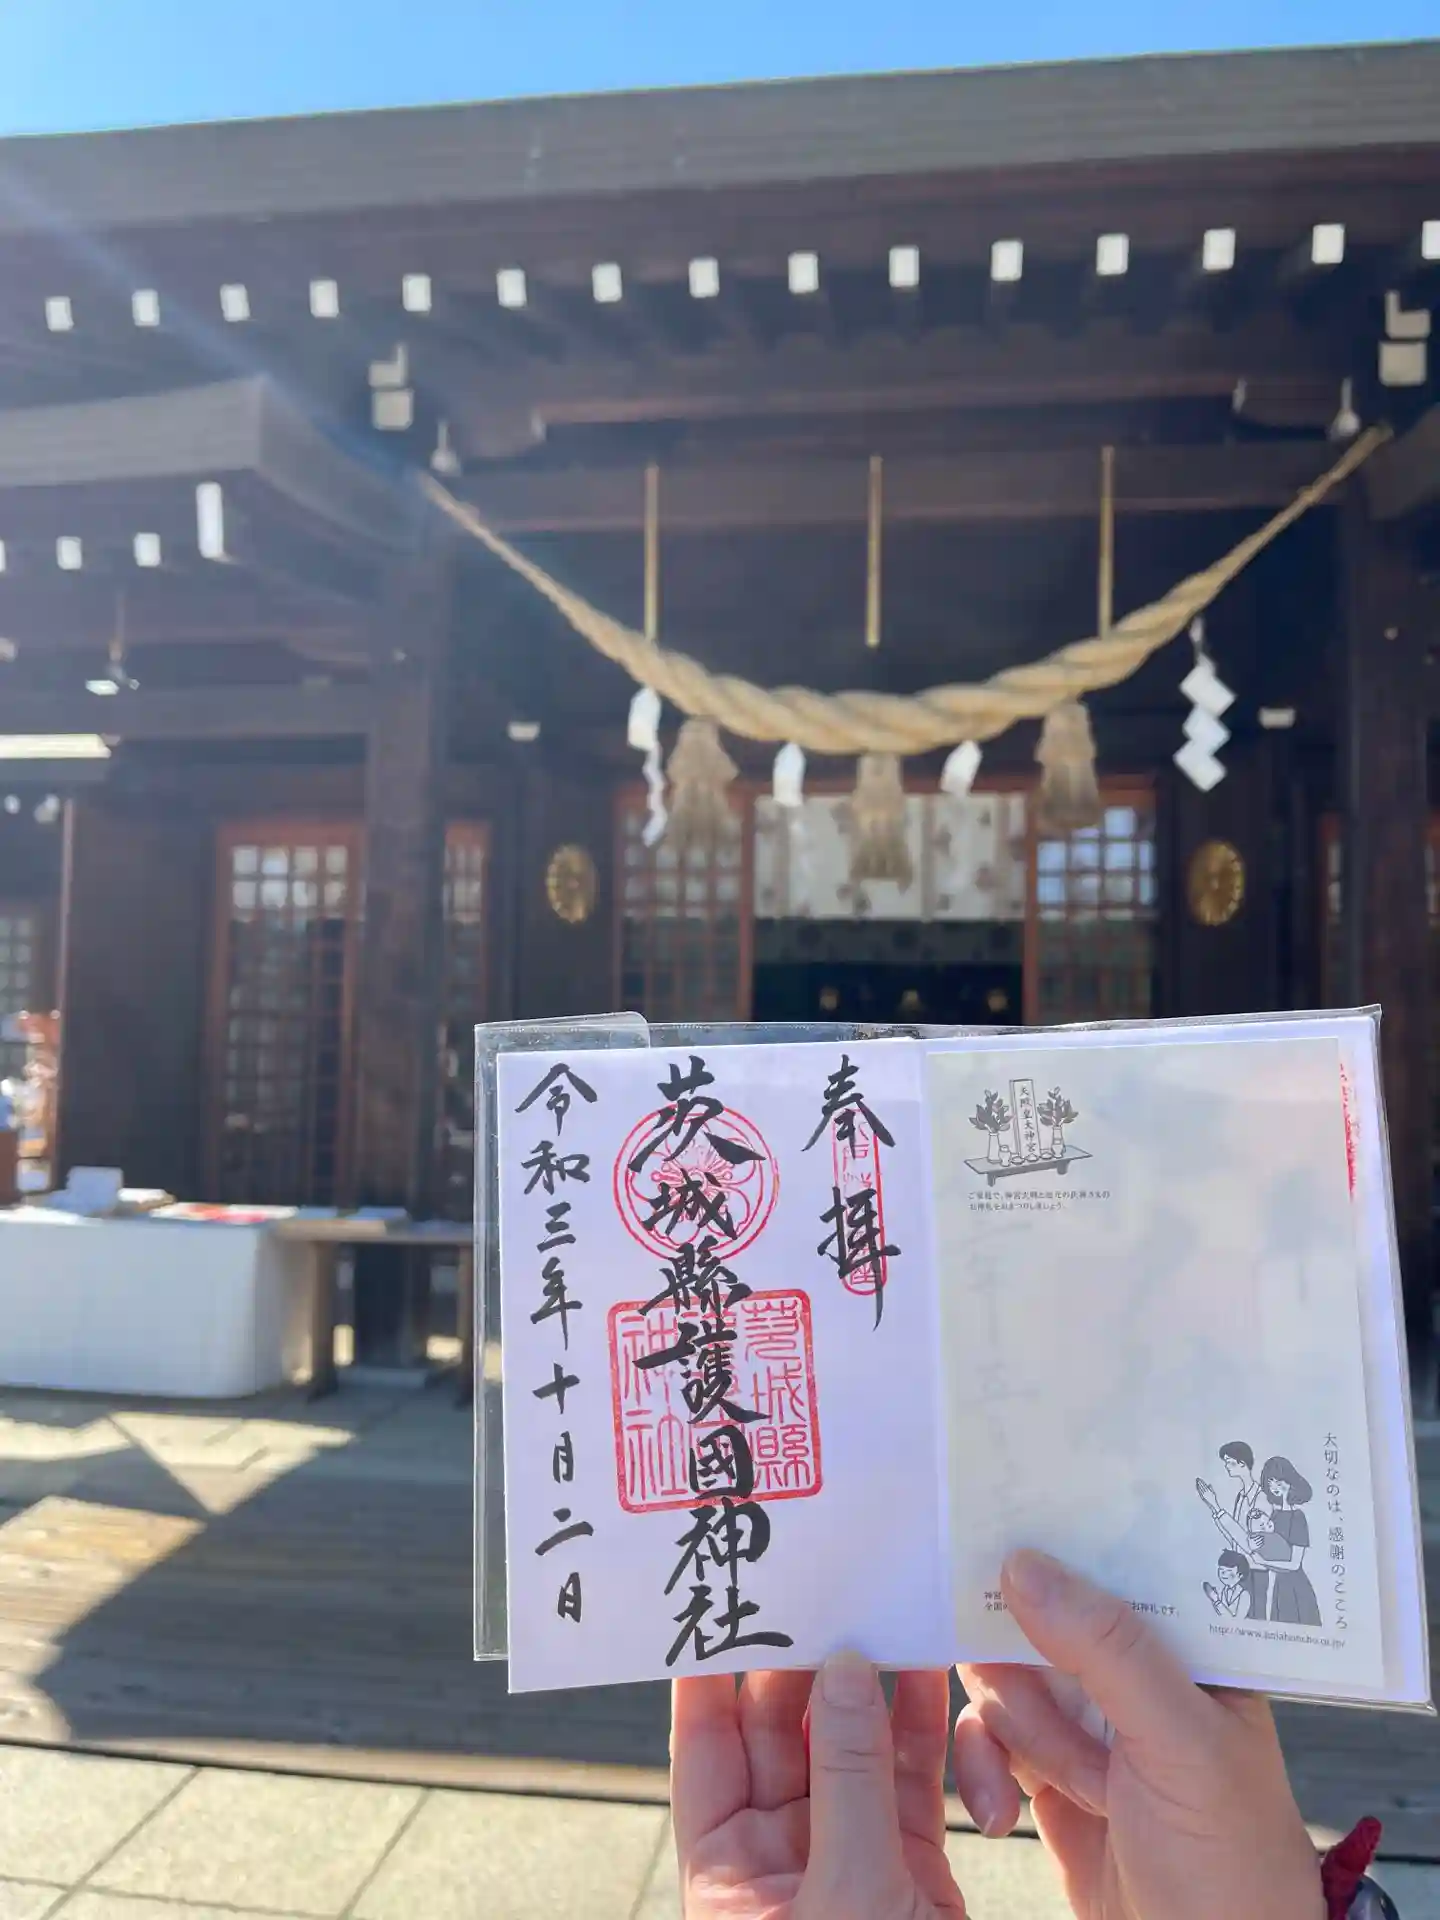 奉拝
茨城縣護國神社
令和三年十月二日
茨城縣
護國
神社
天照皇大神宮
ご家庭で、神宮大麻と地元の氏神さまの
お神札をおまつりしましょう。
大切なのは、感謝のこころ
神宮
全国の
お神札です。
http://www.jinjahoncho.or.jp/